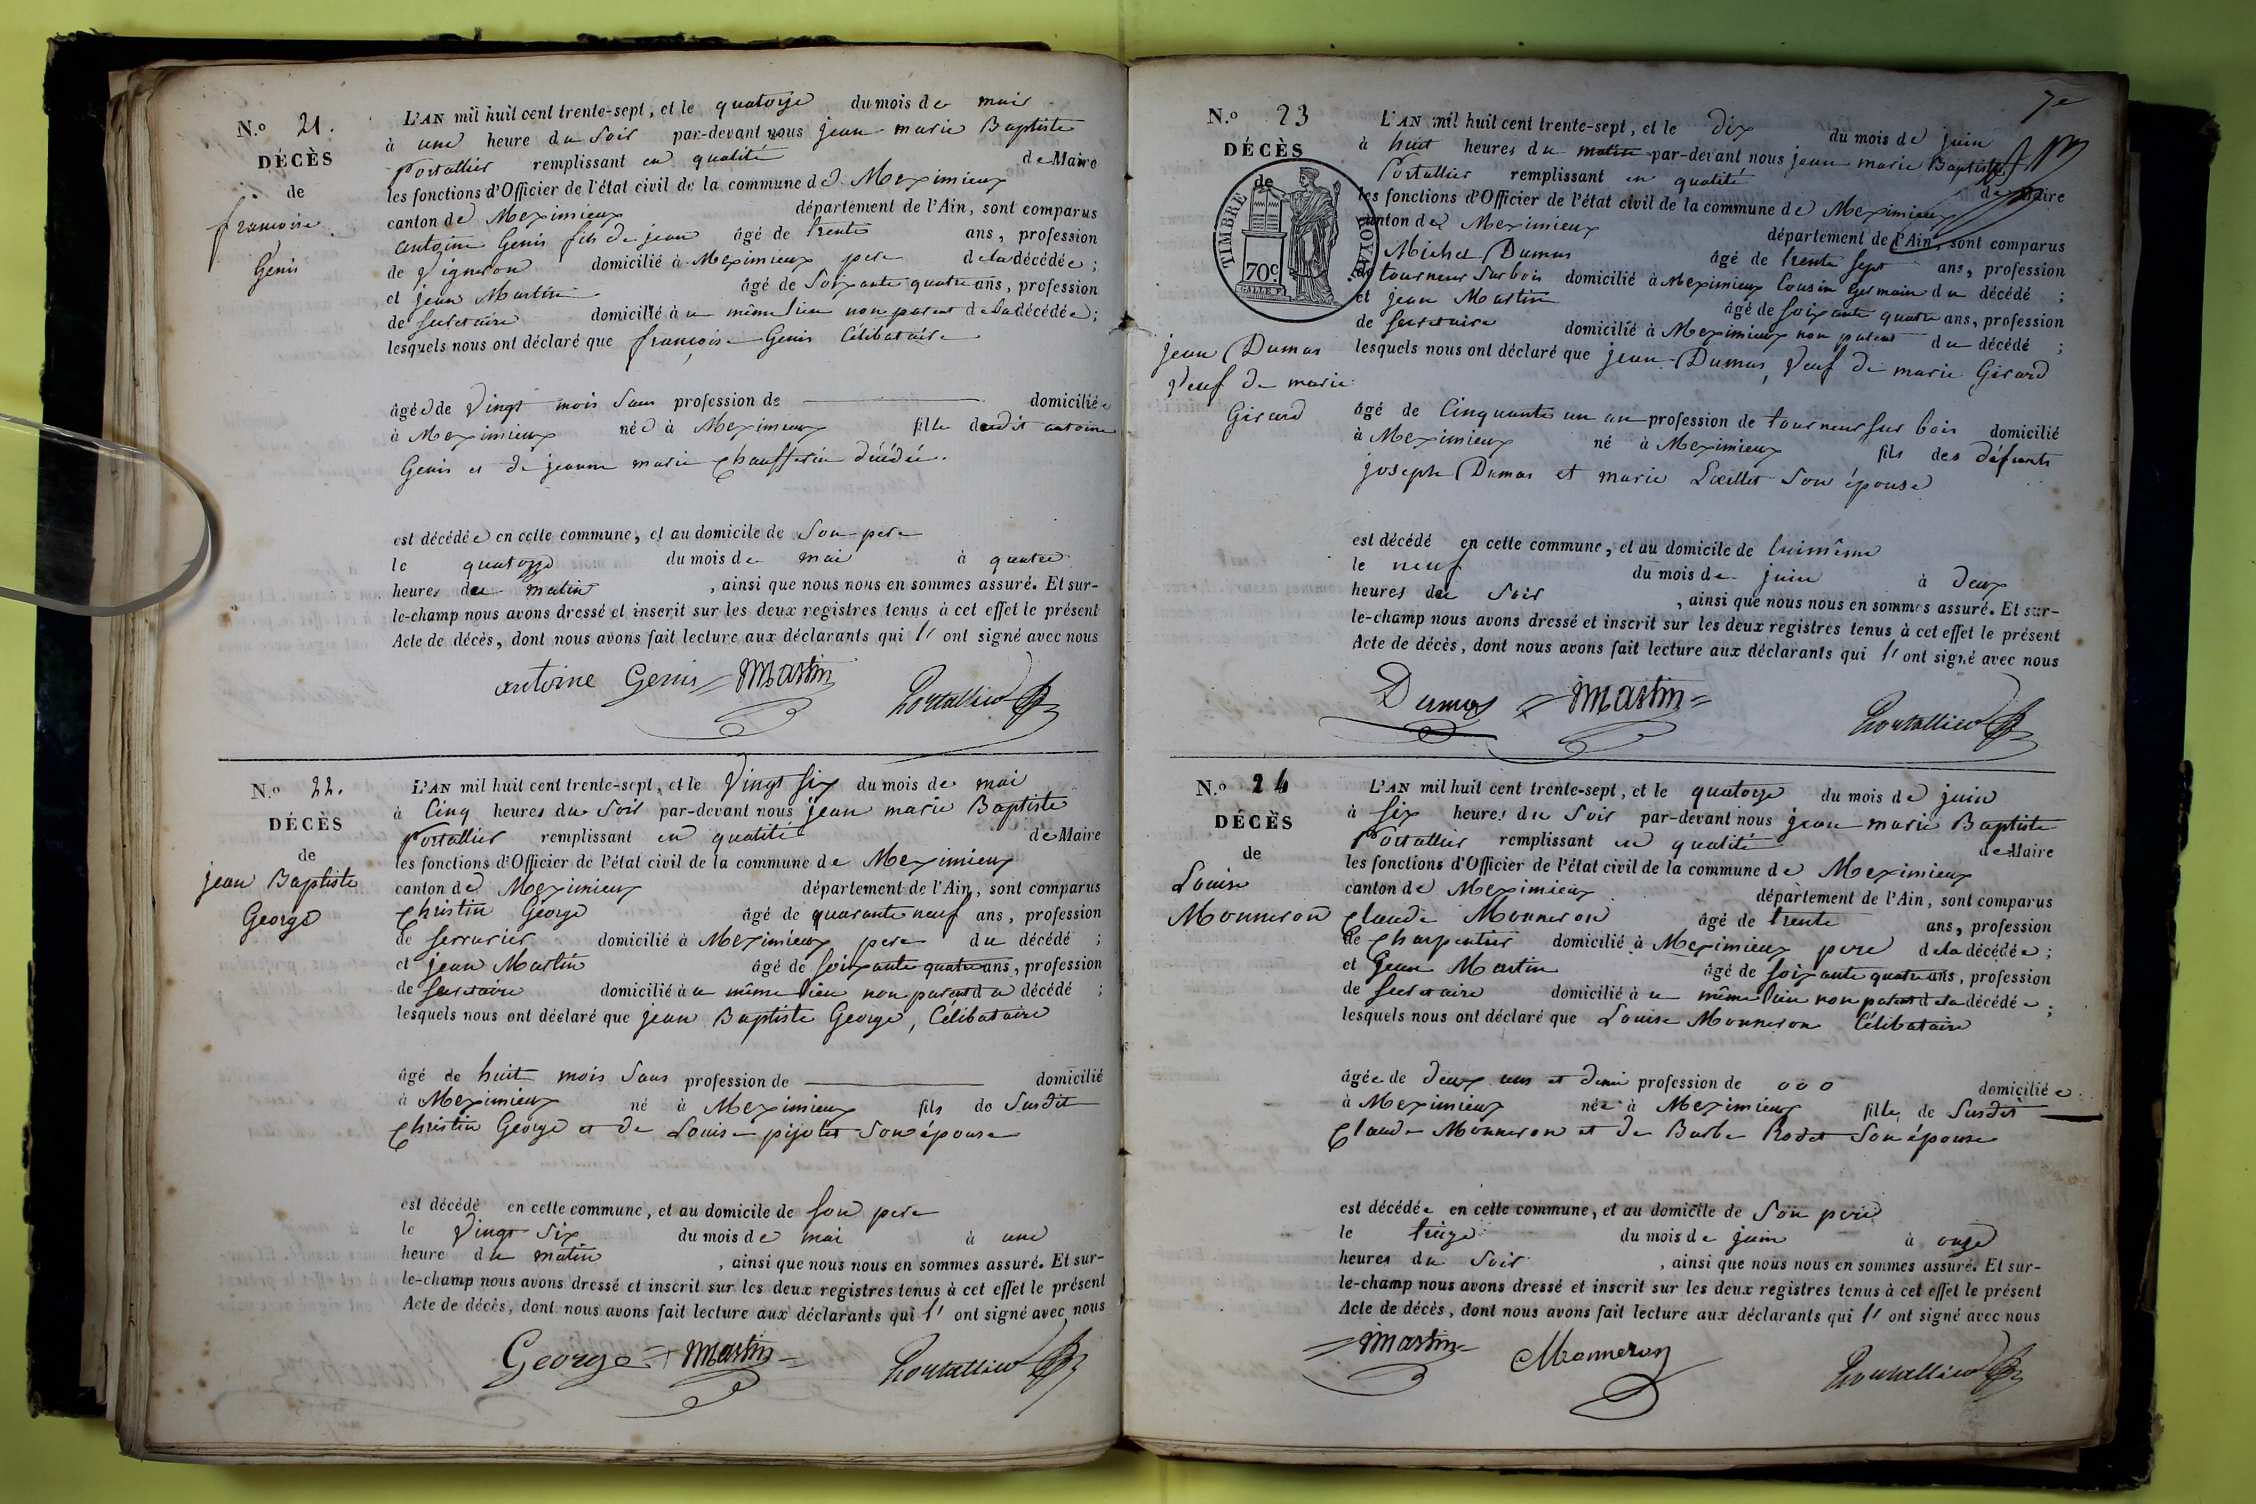 N.º 21.
DÉCÈS
de
françoise
Genis
L'AN mil huit cent trente-sept, et le quatorze du mois de mai
à une heure du Soir par-devant nous jean marie Baptiste
Portallier remplissant en qualité de Maire
les fonctions d'Officier de l'état civil de la commune de Meximieux
canton de Meximieux département de l'Ain, sont comparus
antoine Genis fils de jean âgé de trente ans, profession
de Vigneron domicilié à Meximieux pere de la décédée ;
et jean Martin âgé de Soixante quatre ans, profession
de Secretaire domicilié à u même lieu non parent de la décédée ;
lesquels nous ont déclaré que françoise Genis Célibataire
âgée de Vingt mois Sans profession de domiciliée
à Meximieux née à Meximieux fille dudit antoine
Genis et de jeanne marie Chauffetin décédée.
est décédée en cette commune, et au domicile de Son pere
le quatorze du mois de mai à quatre
heures du matin , ainsi que nous nous en sommes assuré. Et sur-
le-champ nous avons dressé et inscrit sur les deux registres tenus à cet effet le présent
Acte de décès, dont nous avons fait lecture aux déclarants qui l' ont signé avec nous
antoine Genis Martin Portallier
N.º 22.
DÉCÈS
de
jean Baptiste
George
L'AN mil huit cent trente-sept, et le Vingt Six du mois de mai
à Cinq heures du Soir par-devant nous jean marie Baptiste
Portallier remplissant en qualité de Maire
les fonctions d'Officier de l'état civil de la commune de Meximieux
canton de Meximieux département de l'Ain, sont comparus
Christin George âgé de quarante neuf ans, profession
de Serrurier domicilié à Meximieux pere du décédé ;
et jean Martin âgé de Soixante quatre ans, profession
de Secretaire domicilié à u même lieu non parent du décédé ;
lesquels nous ont déclaré que jean Baptiste George, Célibataire
âgé de huit mois Sans profession de domicilié
à Meximieux né à Meximieux fils de Susdit
Christin George et de Louise pijolet Son épouse
est décédé en cette commune, et au domicile de Son pere
le Vingt Six du mois de mai à une
heure du matin , ainsi que nous nous en sommes assuré. Et sur-
le-champ nous avons dressé et inscrit sur les deux registres tenus à cet effet le présent
Acte de décès, dont nous avons fait lecture aux déclarants qui l' ont signé avec nous
George Martin Portallier
7e
N.º 23
DÉCÈS
de
TIMBRE ROYAL
70c
jean Dumas
Veuf de marie
Girard
L'AN mil huit cent trente-sept, et le dix du mois de juin
à huit heures du matin par-devant nous jean marie Baptiste
Portallier remplissant en qualité de Maire
les fonctions d'Officier de l'état civil de la commune de Meximieux
canton de Meximieux département de l'Ain, sont comparus
Michel Dumas âgé de trente Sept ans, profession
de tourneur Sur bois domicilié à Meximieux Cousin germain du décédé ;
et jean Martin âgé de Soixante quatre ans, profession
de Secretaire domicilié à Meximieux non parent du décédé ;
lesquels nous ont déclaré que jean Dumas, Veuf de marie Girard
âgé de Cinquante un an profession de tourneur Sur bois domicilié
à Meximieux né à Meximieux fils des défunts
joseph Dumas et marie Loeillet Son épouse
est décédé en cette commune, et au domicile de lui même
le neuf du mois de juin à Deux
heures du Soir , ainsi que nous nous en sommes assuré. Et sur-
le-champ nous avons dressé et inscrit sur les deux registres tenus à cet effet le présent
Acte de décès, dont nous avons fait lecture aux déclarants qui l' ont signé avec nous
Dumas Martin Portallier
N.º 24
DÉCÈS
de
Louise
Monneron
L'AN mil huit cent trente-sept, et le quatorze du mois de juin
à Six heures du Soir par-devant nous jean marie Baptiste
Portallier remplissant en qualité de Maire
les fonctions d'Officier de l'état civil de la commune de Meximieux
canton de Meximieux département de l'Ain, sont comparus
Claude Monneron âgé de trente ans, profession
de Charpentier domicilié à Meximieux pere de la décédée ;
et Jean Martin âgé de Soixante quatre ans, profession
de Secretaire domicilié à u même lieu non parent de la décédée ;
lesquels nous ont déclaré que Louise Monneron Célibataire
âgée de deux ans et demi profession de o o o domiciliée
à Meximieux née à Meximieux fille de Susdit
Claude Monneron et de Barbe Rodet Son épouse
est décédée en cette commune, et au domicile de Son pere
le treize du mois de juin à onze
heures du Soir , ainsi que nous nous en sommes assuré. Et sur-
le-champ nous avons dressé et inscrit sur les deux registres tenus à cet effet le présent
Acte de décès, dont nous avons fait lecture aux déclarants qui l' ont signé avec nous
Martin Monneron Portallier